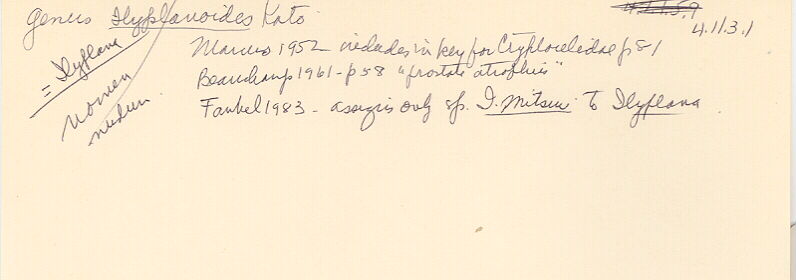 Genus Ilyplanoides Kato
4.1.1.3.1
= Ilyplana
nomen
nudum
Marcus 1952 includes in key for Cryptocelidae p 81
Beauchamp 1961 - p 58 "prostate atrophiés"
Faubel 1983 - assigns only sp. I. mitsuii to Ilyplana